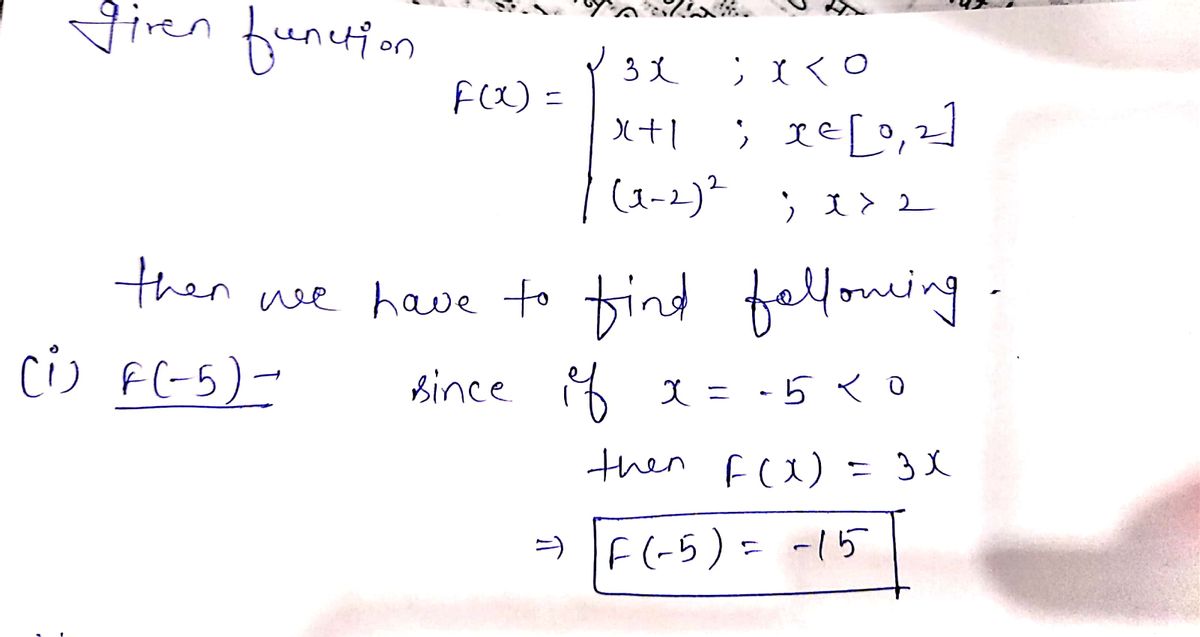 given function
F(x) = { 3x ; x < 0
x+1 ; x∈[0,2]
(x-2)² ; x > 2
then we have to find following -
(i) F(-5) → since if x = -5 < 0
then F(x) = 3x
⇒ F(-5) = -15